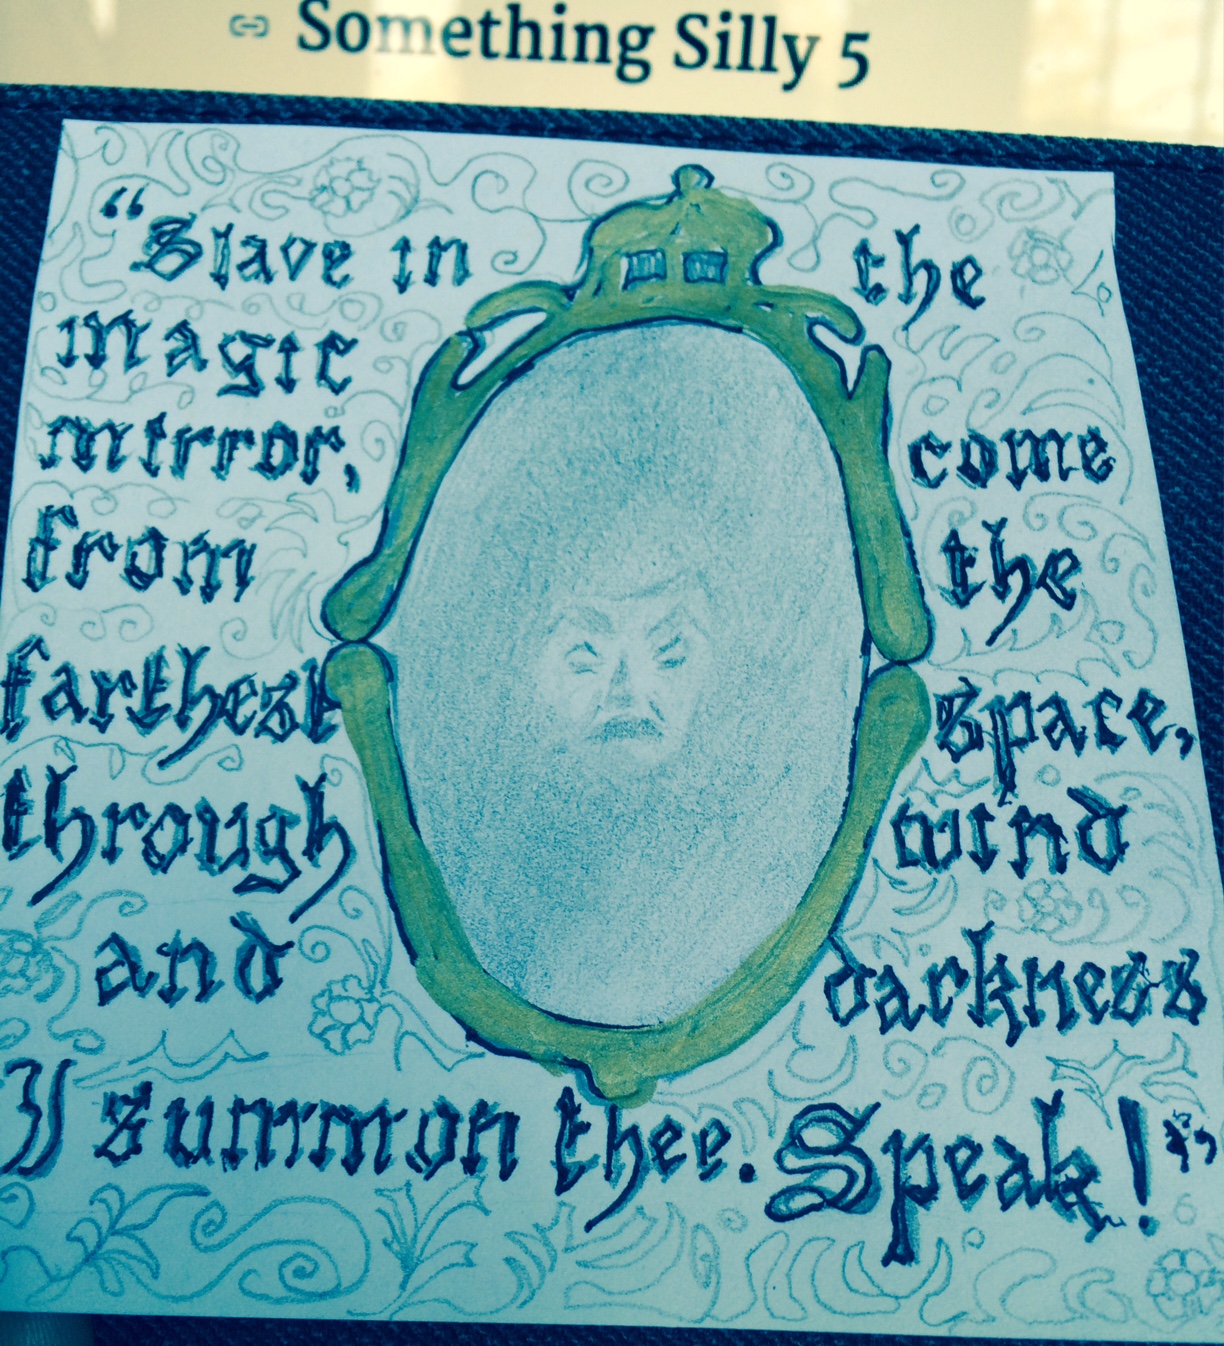 Something Silly 5
"Slave in the
magic
mirror, come
from the
farthest space,
through wind
and darkness
I summon thee. Speak!"